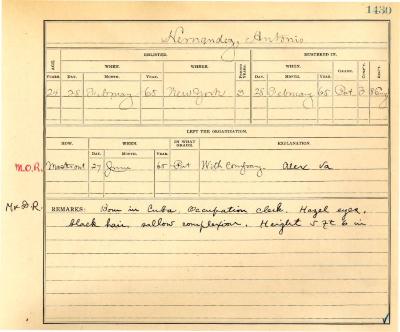 1430
Hernandez, Antonio
ENLISTED. MUSTERED IN.
AGE. WHEN. WHERE. PERIOD YEARS. WHEN. GRADE. CO'Y. REG'T.
YEARS. DAY. MONTH. YEAR. DAY. MONTH. YEAR.
24 28 Febuary 65 New York 3 28 Febuary 65 Pvt
LEFT THE ORGANIZATION.
HOW. WHEN. IN WHAT GRADE. EXPLANATION.
DAY. MONTH. YEAR.
M.O.R. Must'out 27 June 65 Pvt With Company. Alex Va
M & D.R. REMARKS: Born in Cuba. Occupation clerk. Hazel eyes,
black hair, sallow complexion. Height 5 ft 6 in